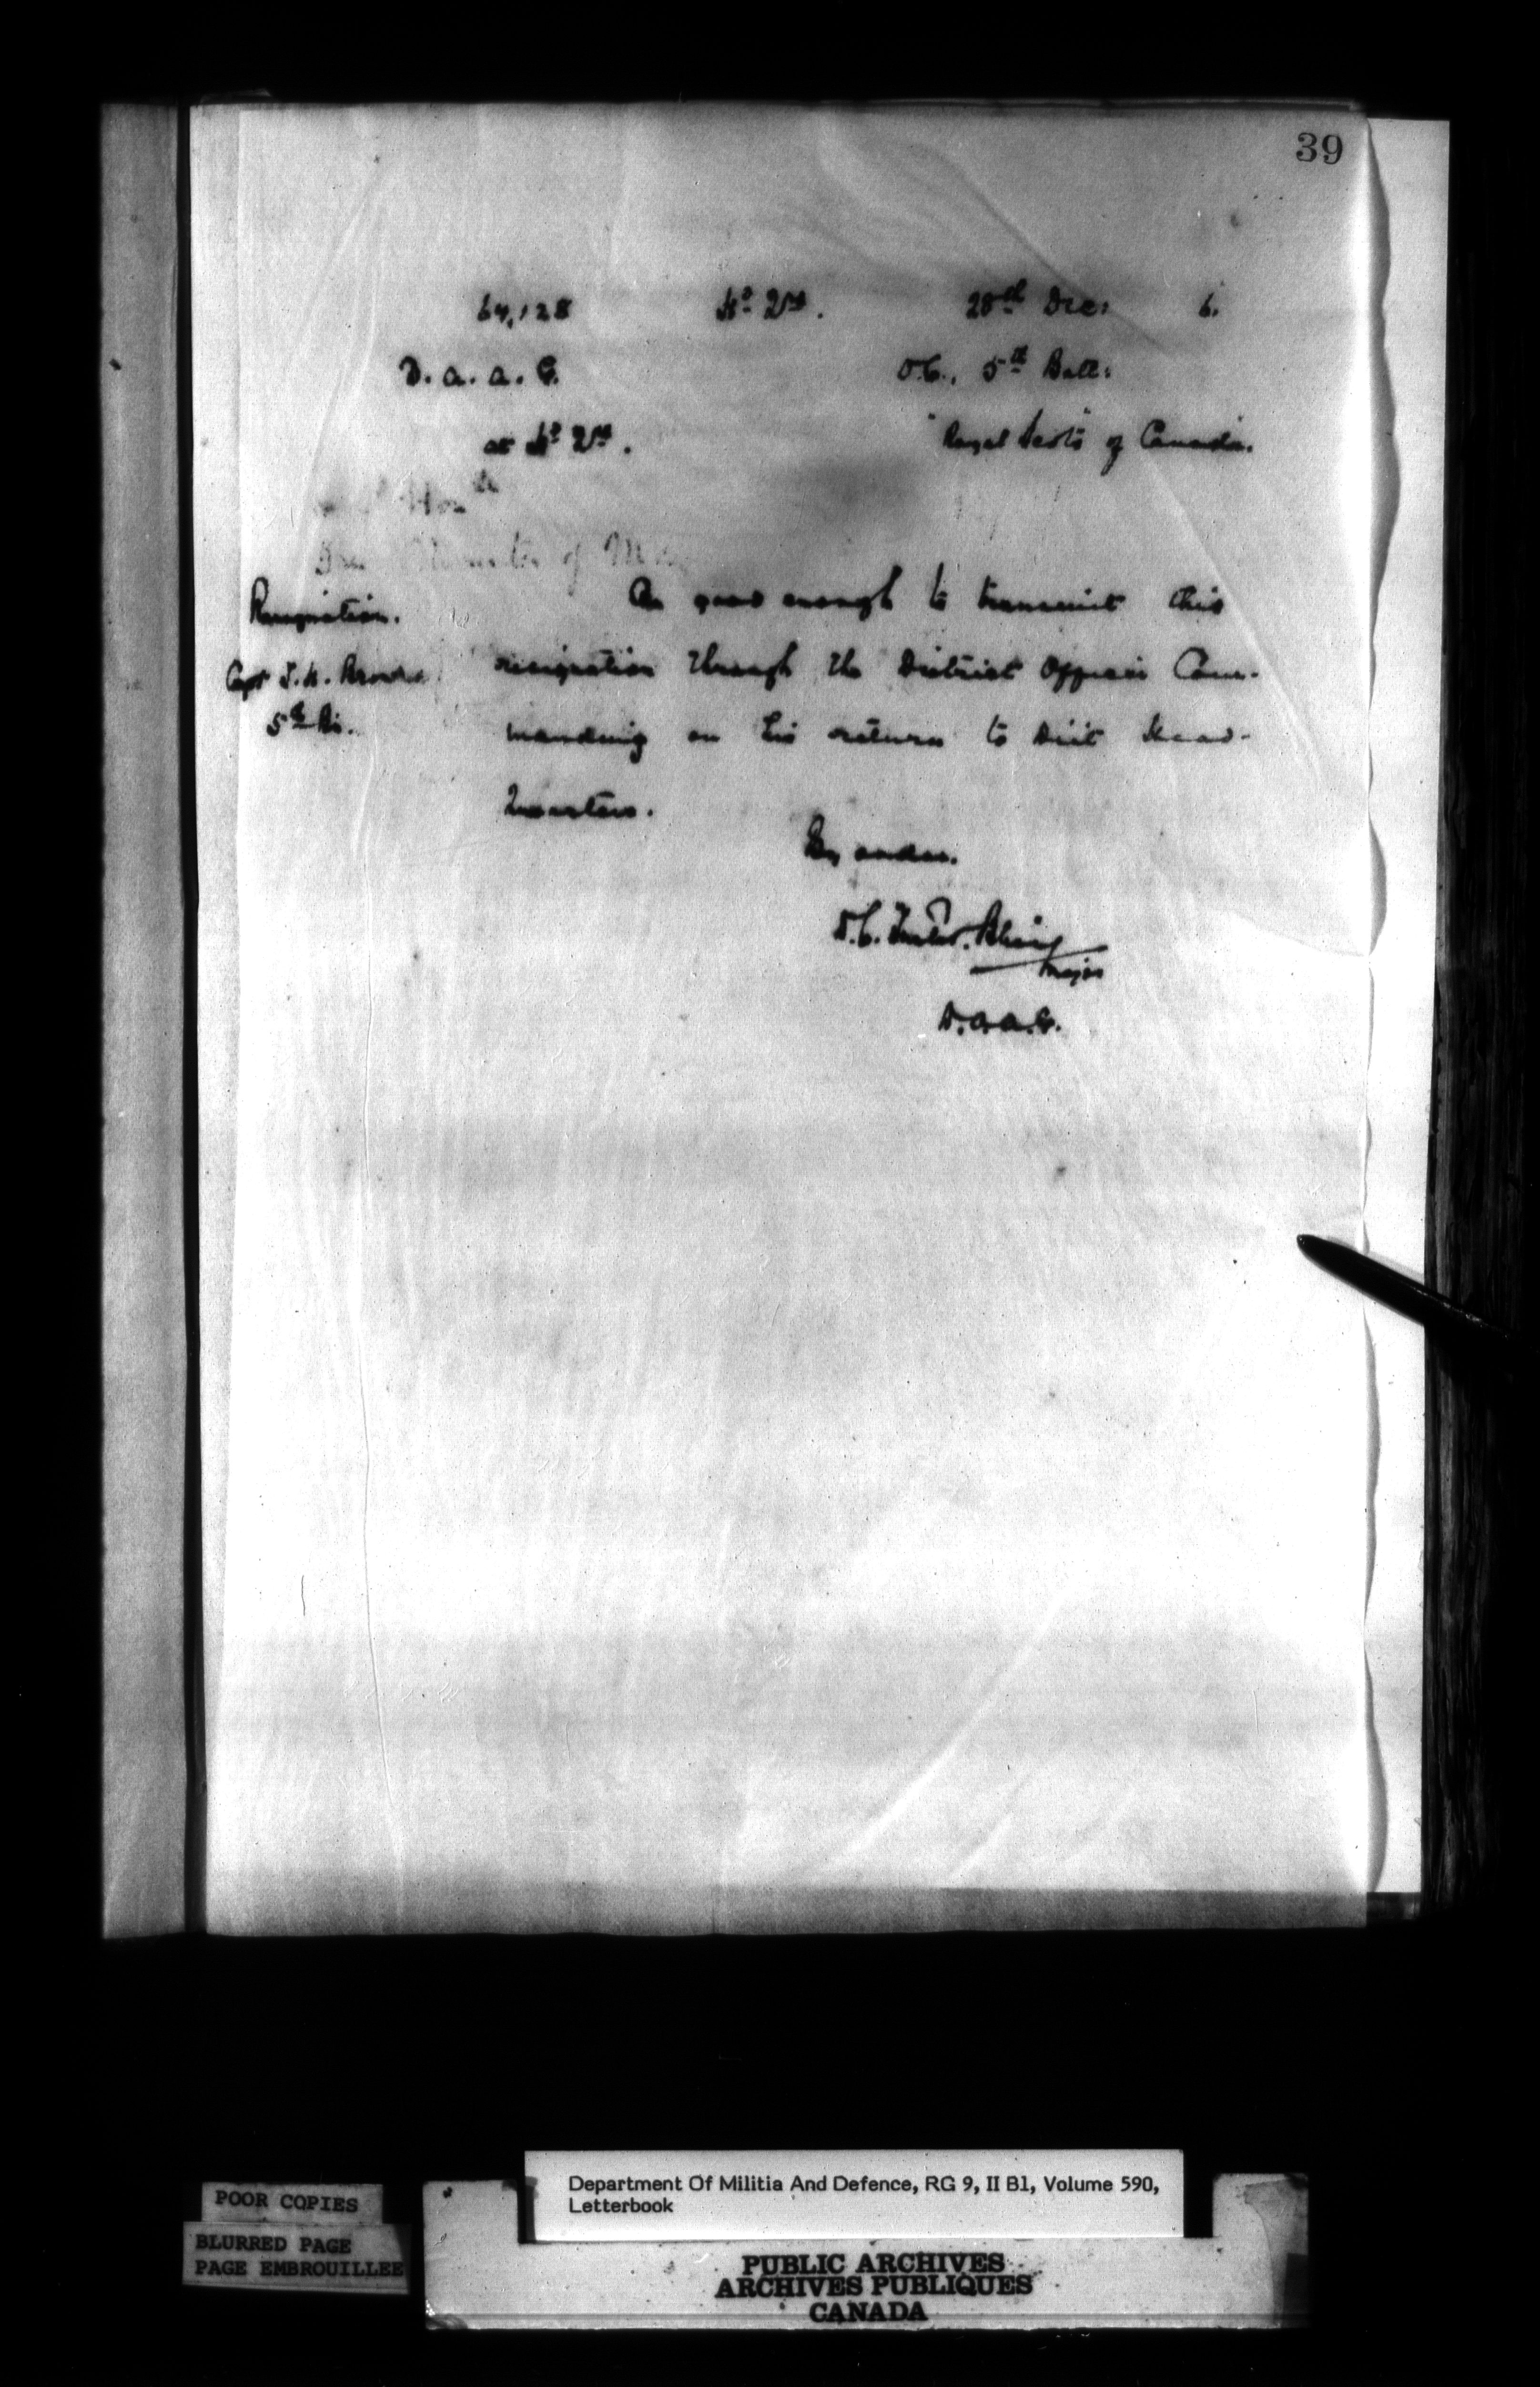 39
64,128 Hd Qrs. 28th Dec: 6.
D. A. A. G. O.C., 5th Batt:
at Hd Qrs. "Royal Scots of Canada.
Honble
of
Resignation. Be good enough to transmit this
Capt J. H. resignation through the District Officer Com-
5th Bn. manding on his return to Dist Head-
Quarters.
By order.
Major
D.A.A.G.
POOR COPIES
BLURRED PAGE
PAGE EMBROUILLEE
Department Of Militia And Defence, RG 9, II B1, Volume 590,
Letterbook
PUBLIC ARCHIVES
ARCHIVES PUBLIQUES
CANADA